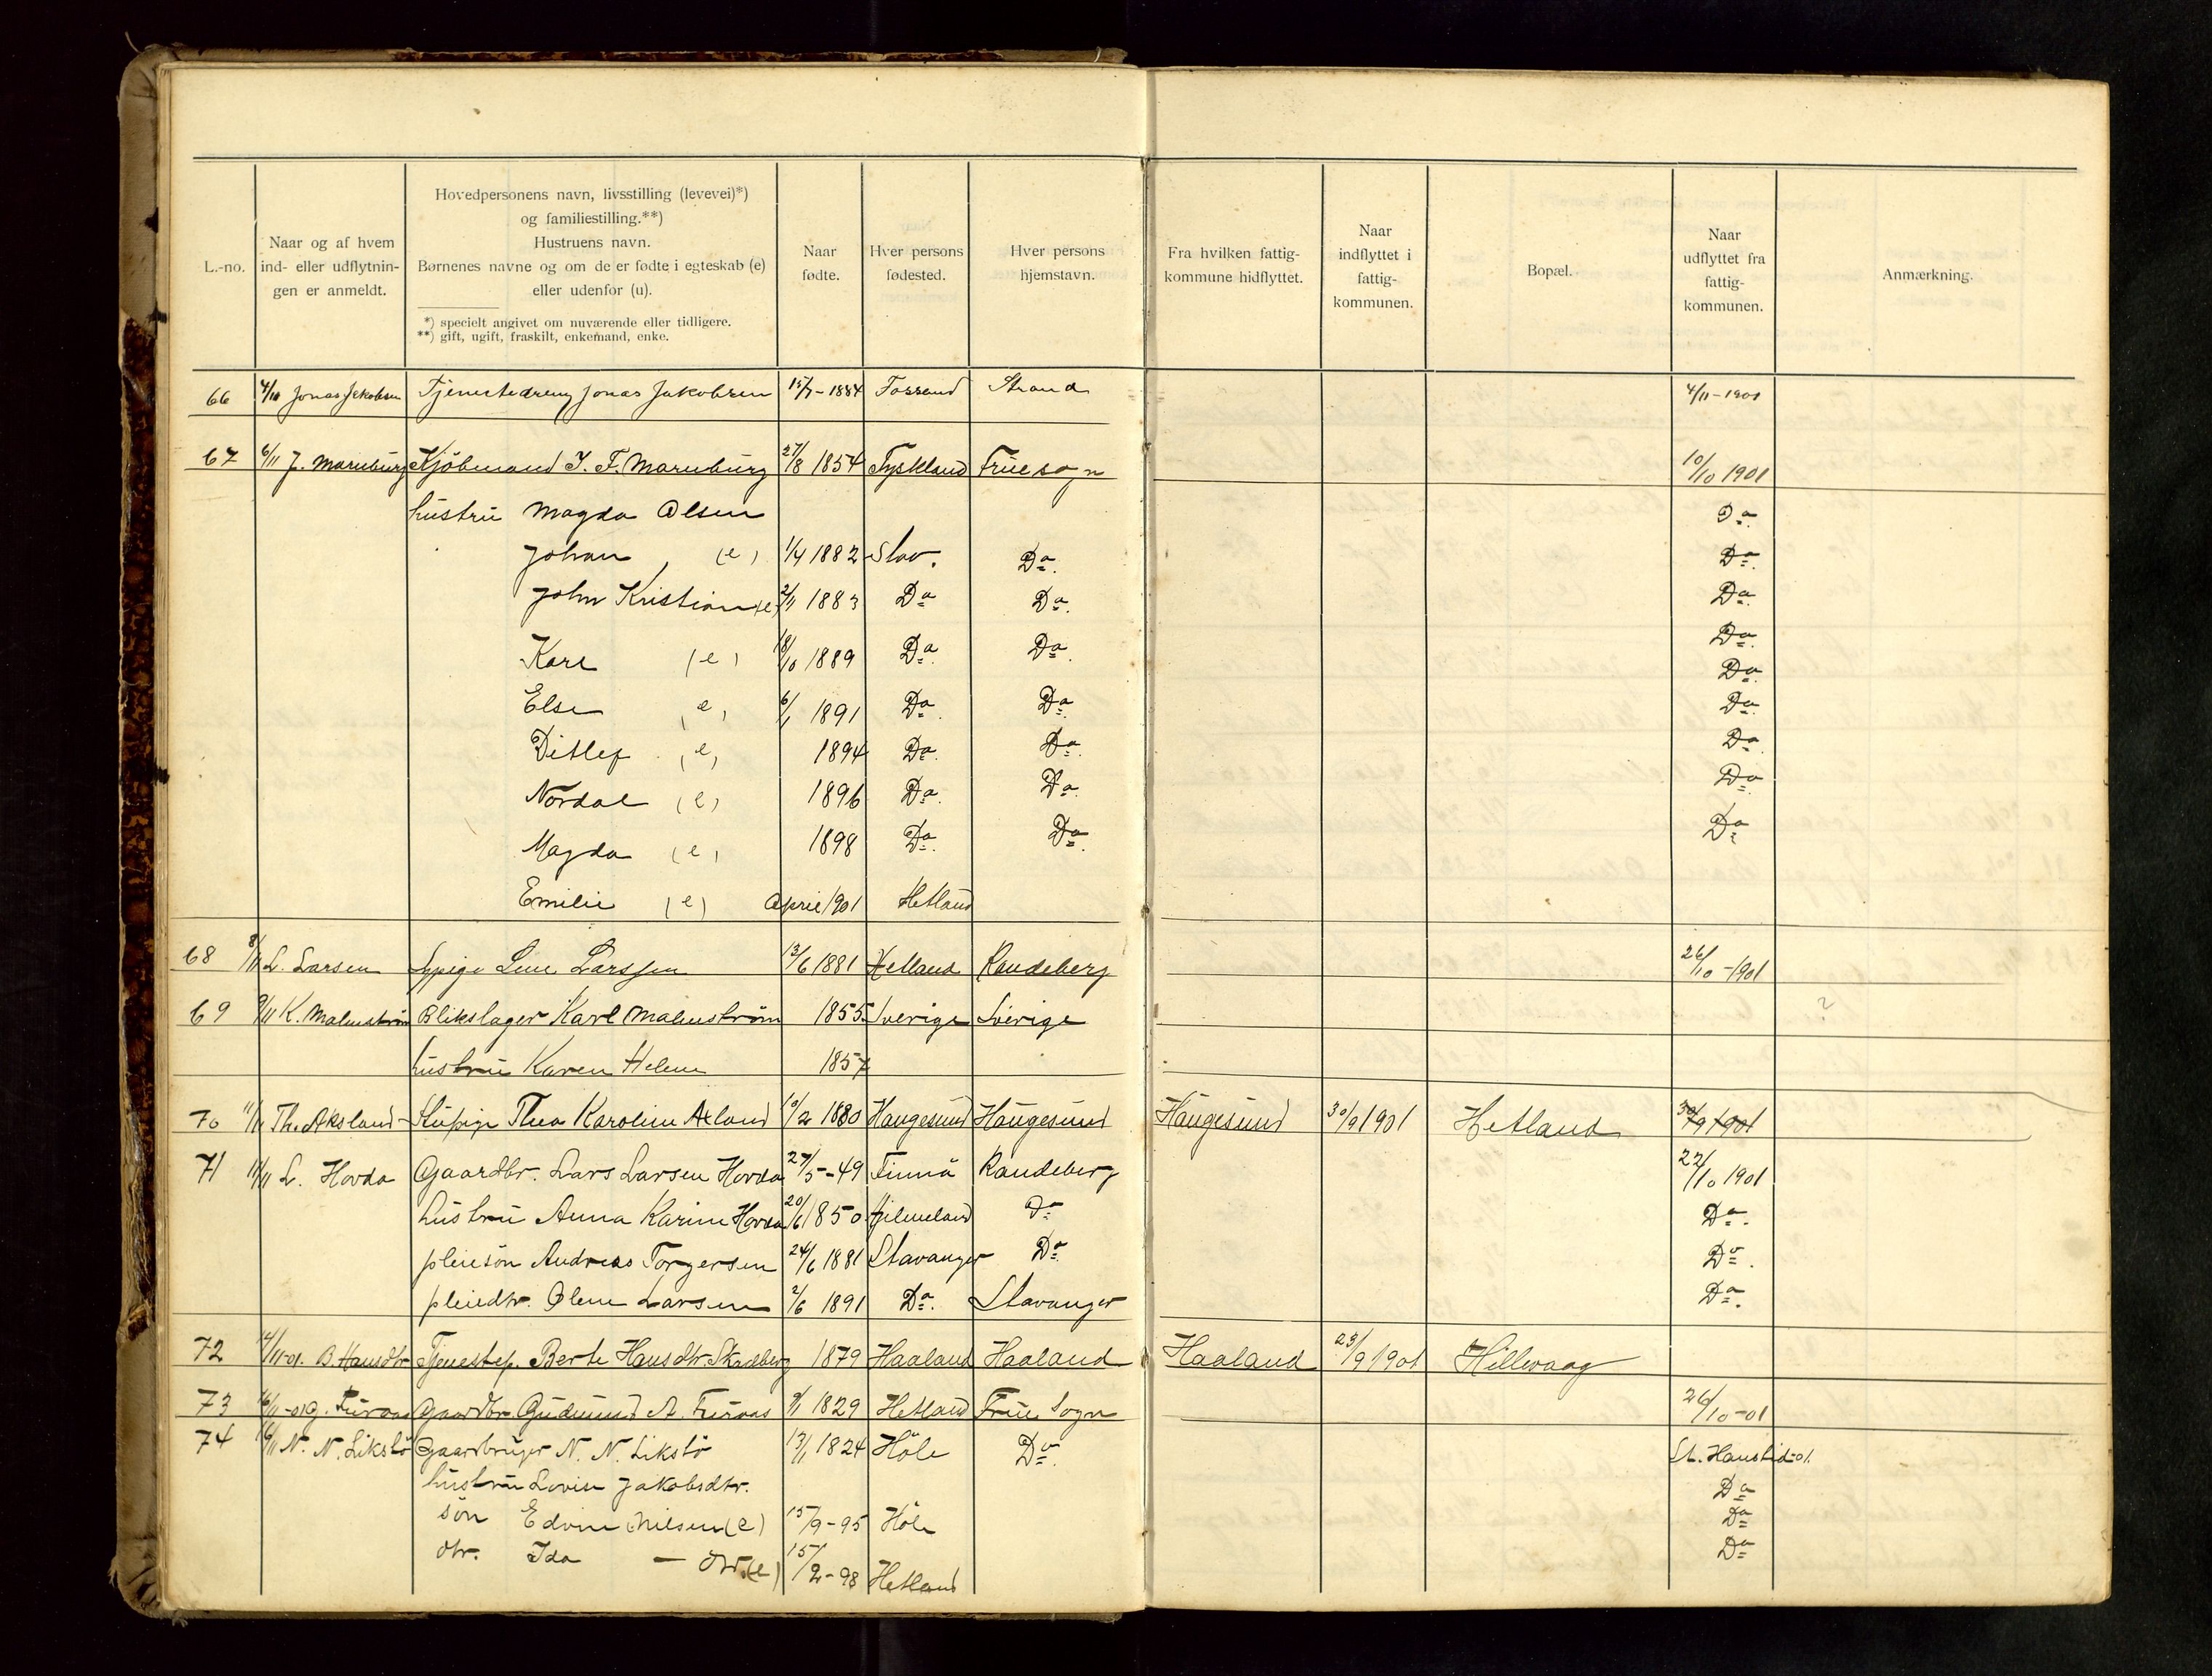 L.-no.
Naar og af hvem
ind- eller udflytnin-
gen er anmeldt.
Hovedpersonens navn, livsstilling (levevei)*)
og familiestilling.**)
Hustruens navn.
Børnenes navne og om de er fødte i egteskab (e)
eller udenfor (u).
*) specielt angivet om nuværende eller tidligere.
**) gift, ugift, fraskilt, enkemand, enke.
Naar
fødte.
Hver persons
fødested.
Hver persons
hjemstavn.
Fra hvilken fattig-
kommune hidflyttet.
Naar
indflyttet i
fattig-
kommunen.
Bopæl.
Naar
udflyttet fra
fattig-
kommunen.
Anmærkning.
66 Jonas Jakobsen Tjenestedreng Jonas Jakobsen 15/7-1884 Fossand Strand 4/11-1901
67 6/11 J. Marnburg Kjöbmand J. F. Marnburg 27/8 1854 Tyskland Frue sogn 10/10 1901
hustru Magda Olsen Do.
Johan (e) 1/4 1882 Stav. Do. Do.
John Kristian (e) 2/11 1883 Do Do. Do.
Kare (e) 18/10 1889 Do. Do. Do.
Else (e) 6/1 1891 Do. Do. Do.
Ditlef (e) 1894 Do. Do. Do.
Nordal (e) 1896 Do. Do. Do.
Magda (e) 1898 Do. Do. Do
Emilie (e) April 1901 Hetland Do
68 8/11 L. Larsen Lene Larssen 13/6 1881 Hetland Randeberg 26/10-1901
69 9/11 K. Malmström Blikslager Karl Malmström 1855 Sverige Sverige ?
hustru Karen Helene 1857
70 11/11 Th. Aksland Thea Karoline Axland 10/2 1880 Haugesund Haugesund Haugesund 30/9 1901 Hetland 30/9 1901
71 11/11 L. Hovda Gaardbr. Lars Larsen Hovda 27/5-49 Finnö Randeberg 22/10 1901
hustru Anna Karine Hovda 20/6 1850 Hjelmeland Do Do.
pleiesön Andreas Torgersen 24/6 1881 Stavanger Do Do.
pleiedtr. Olene Larsen 2/6 1891 Do. Stavanger Do.
72 14/11-01. B. Hansdtr Tjenestep. Berte Hansdtr. Skadberg 1879 Haaland Haaland Haaland 23/9 1901 Hillevaag
73 16/11-01 G. Furaas Gaardbr. Gudmund A. Furaas 9/1 1829 Hetland Frue Sogn 26/10-01
74 16/11 N. N. Likstö Gaardbruger N. N. Likstö 13/1 1824 Höle Do. St. Hanstid-01.
hustru Lovise Jakobsdtr. Do
sön Edvin Nilsen (e) 15/9-95 Höle Do
dtr. Ida — dtr. (e) 15/2-98 Hetland Do